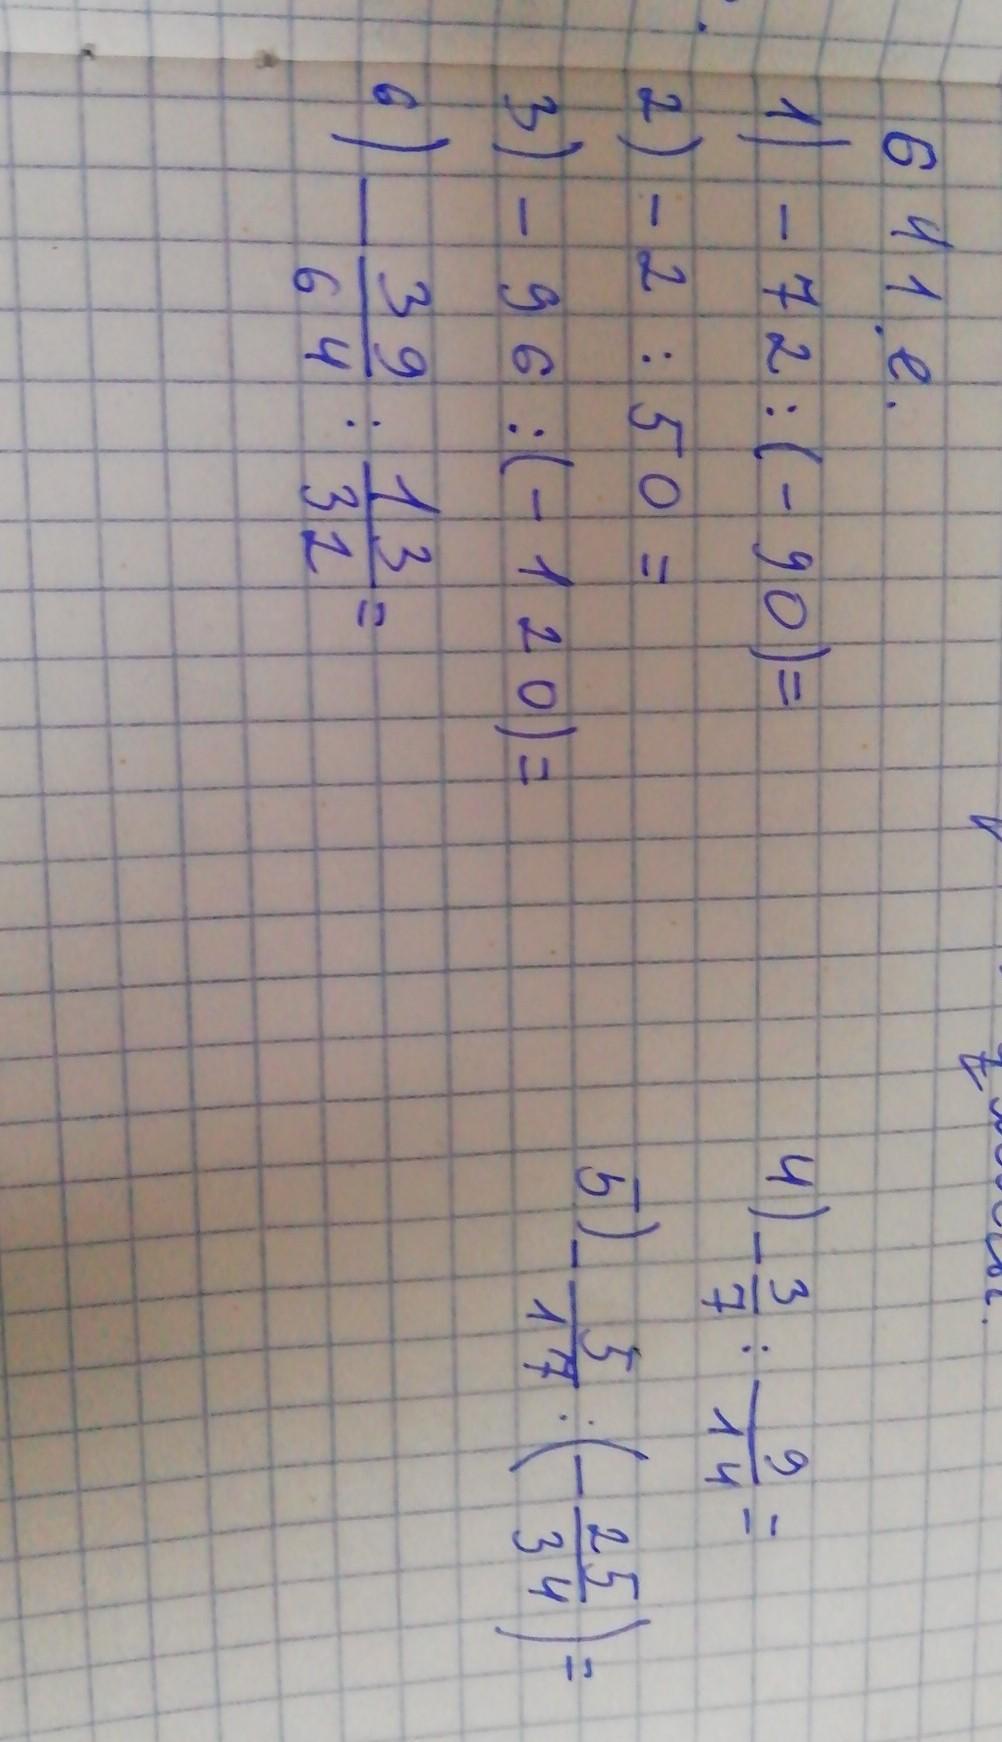 641.е.
1) -72:(-90)=
2) -2:50=
3) -96:(-120)=
6) -39/64:13/32=
4) -3/7:9/14=
5) -5/17:(-25/34)=